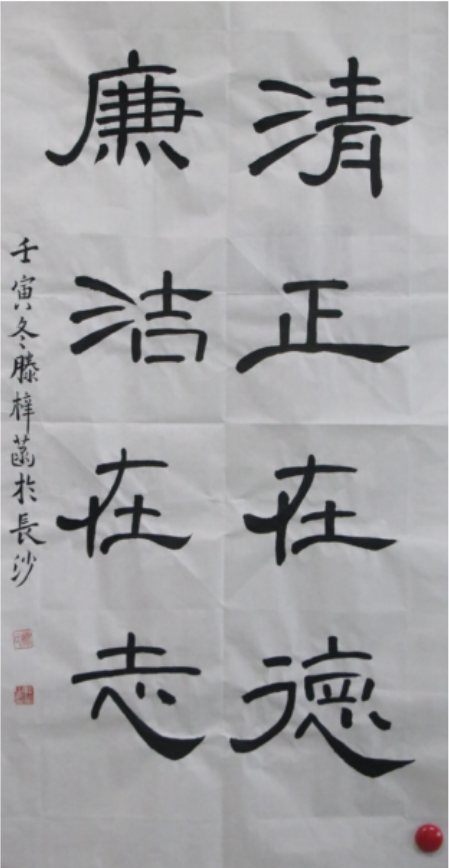 清正在德
廉洁在志
壬寅冬滕梓菡於長沙